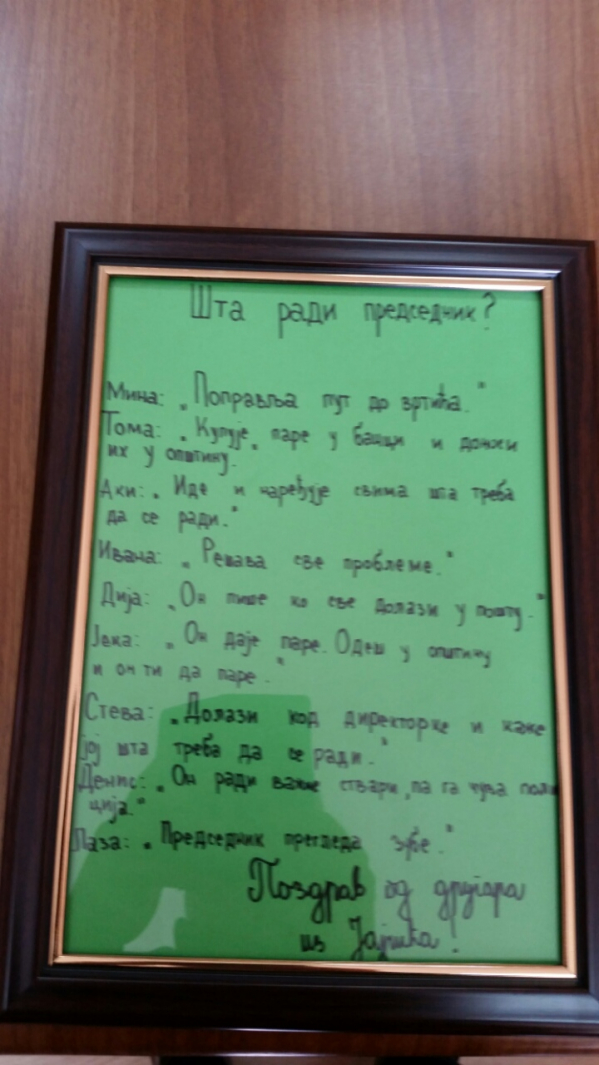 Шта ради председник?
Мина: „Поправља пут до вртића."
Тома: „Купује паре у банци и доноси
их у општину.
Аки: „Иде и наређује свима шта треба
да се ради."
Ивана: „Решава све проблеме."
Дија: „Он пише ко све долази у пошту."
Јека: „Он даје паре. Одеш у општину
и он ти да паре."
Стева: „Долази код директорке и каже
јој шта треба да се ради."
Денис: „Он ради важне ствари, па га чува поли
ција."
Лаза: „Председник прегледа зубе."
Поздрав од другара
из Јајчића!